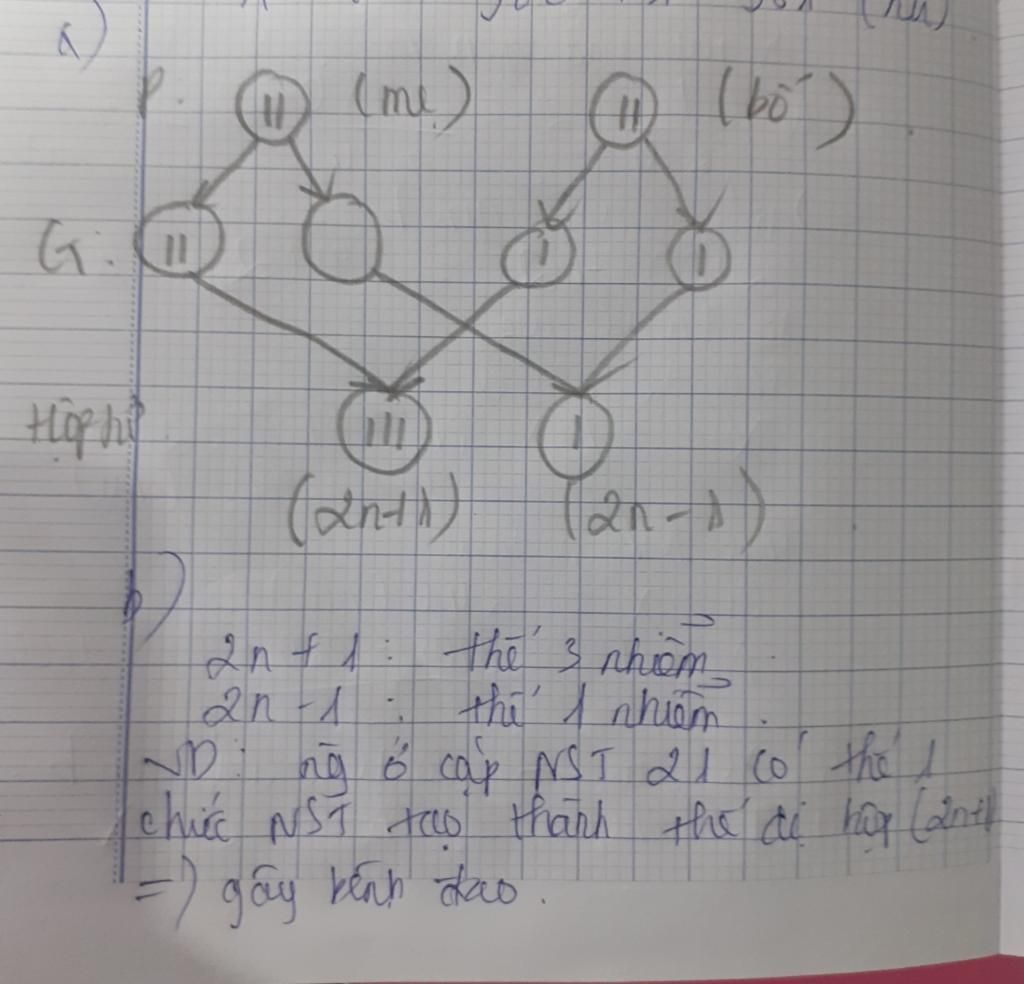 a)
P. (mẹ) (bố)
G:
Hợp tử
(2n+1) (2n-1)
b)
2n + 1: thể 3 nhiễm
2n - 1: thể 1 nhiễm.
VD: ng ở cặp NST 21 có thê 1
chiếc NST tạo thành thể dị hợp (2n+1
=) gây bệnh đao.